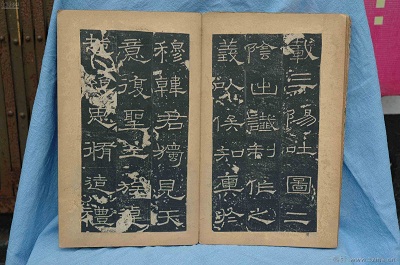 載三陽吐圖二
陰出讖制作之
義以俟知奧於
穆韓君獨見天
意復聖二族逴
越絕思脩造禮